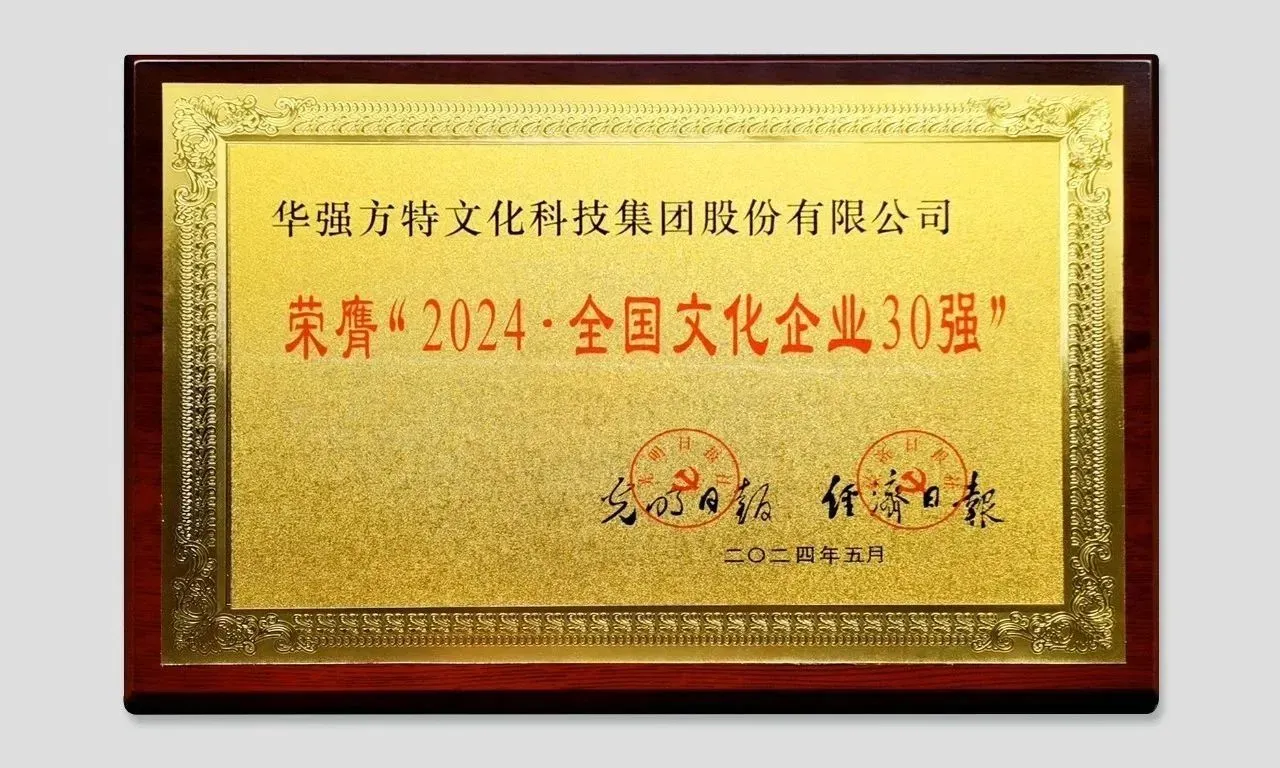 华强方特文化科技集团股份有限公司
荣膺“2024·全国文化企业30强”
光明日报 经濟日報
二〇二四年五月